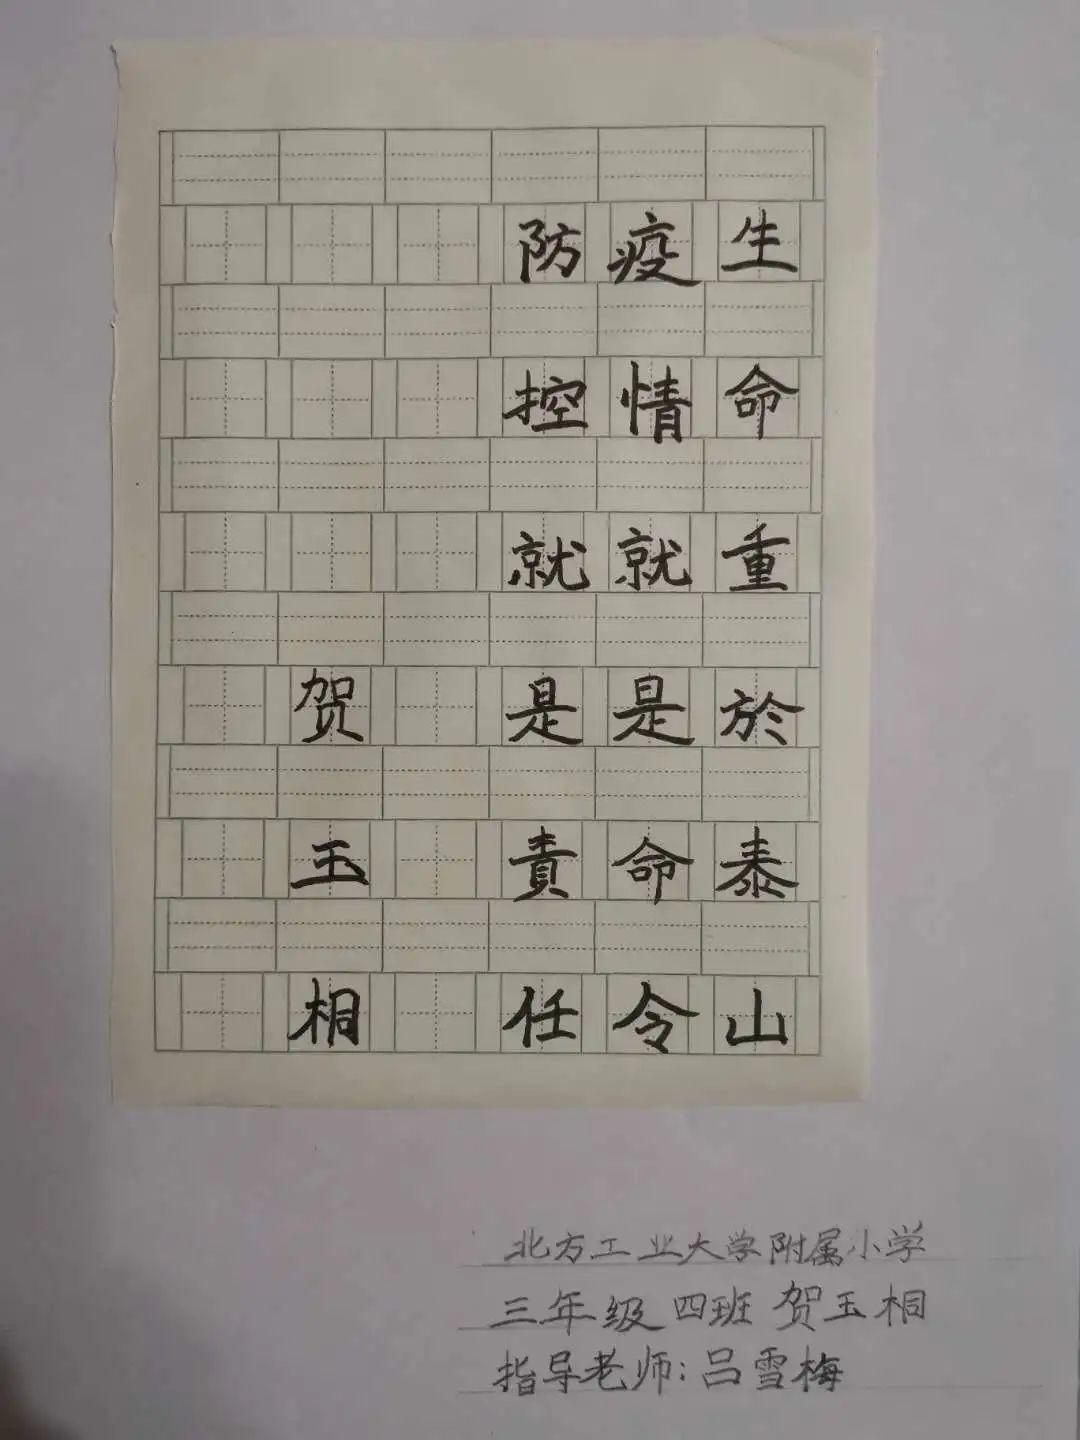 生命重於泰山
疫情就是命令
防控就是責任
贺玉桐
北方工业大学附属小学
三年级四班 贺玉桐
指导老师:吕雪梅